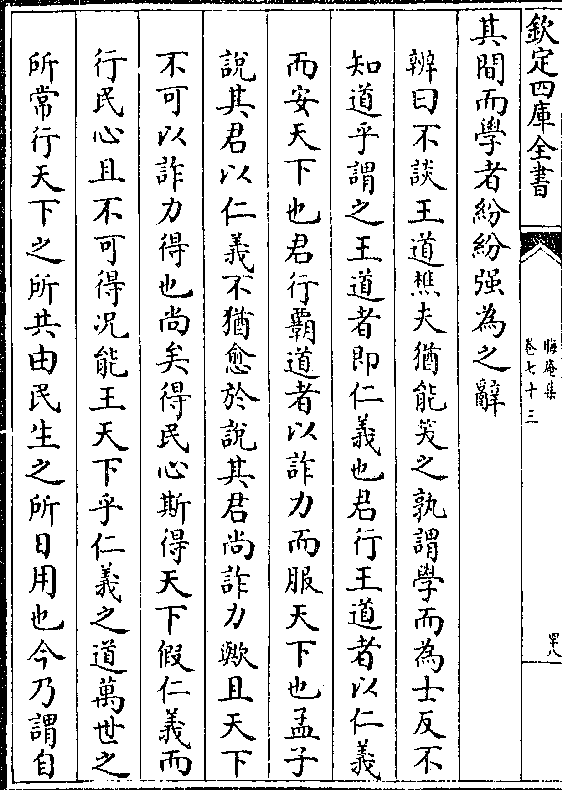 欽定四庫全書
晦庵集
卷七十三
罕八
其間而學者紛紛强為之辭
辨曰不談王道樵夫猶能笑之孰謂學而為士反不
知道乎謂之王道者即仁義也君行王道者以仁義
而安天下也君行覇道者以詐力而服天下也孟子
說其君以仁義不猶愈於說其君尚詐力歟且天下
不可以詐力得也尚矣得民心斯得天下假仁義而
行民心且不可得况能王天下乎仁義之道萬世之
所常行天下之所共由民生之所日用也今乃謂自